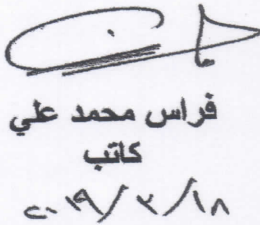 فراس محمد علي
كاتب
٢٠١٩/٣/١٨